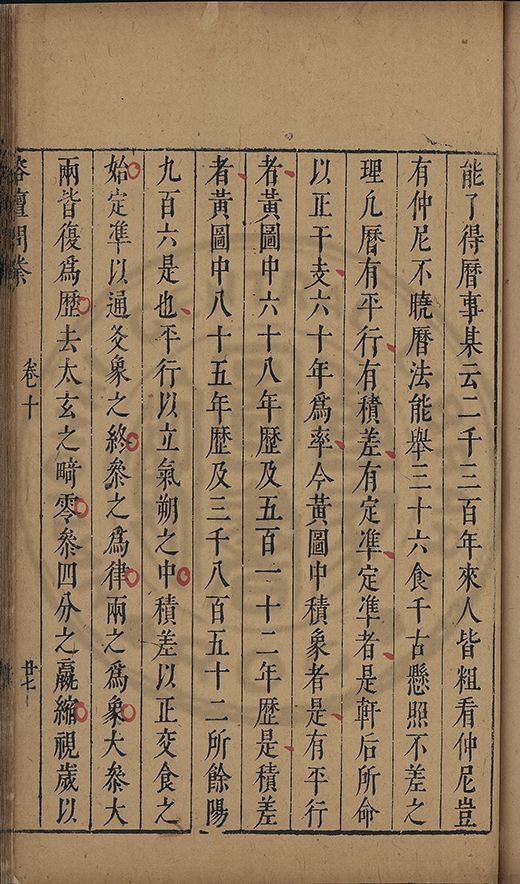 能了得曆事某云二千三百年來人皆粗看仲尼豈
有仲尼不曉曆法能舉三十六食千古懸照不差之
理凡曆有平行有積差有定準定準者是軒后所命
以正干支六十年爲率今黃圖中積象者是有平行
者黃圖中六十八年歷及五百一十二年歷是積差
者黃圖中八十五年歷及三千八百五十二所餘陽
九百六是也平行以立氣朔之中積差以正交食之
始定準以通爻象之終參之爲律兩之爲象大參大
兩皆復爲歷去太玄之畸零參四分之嬴縮視歲以
榕壇問業 卷十 廿七